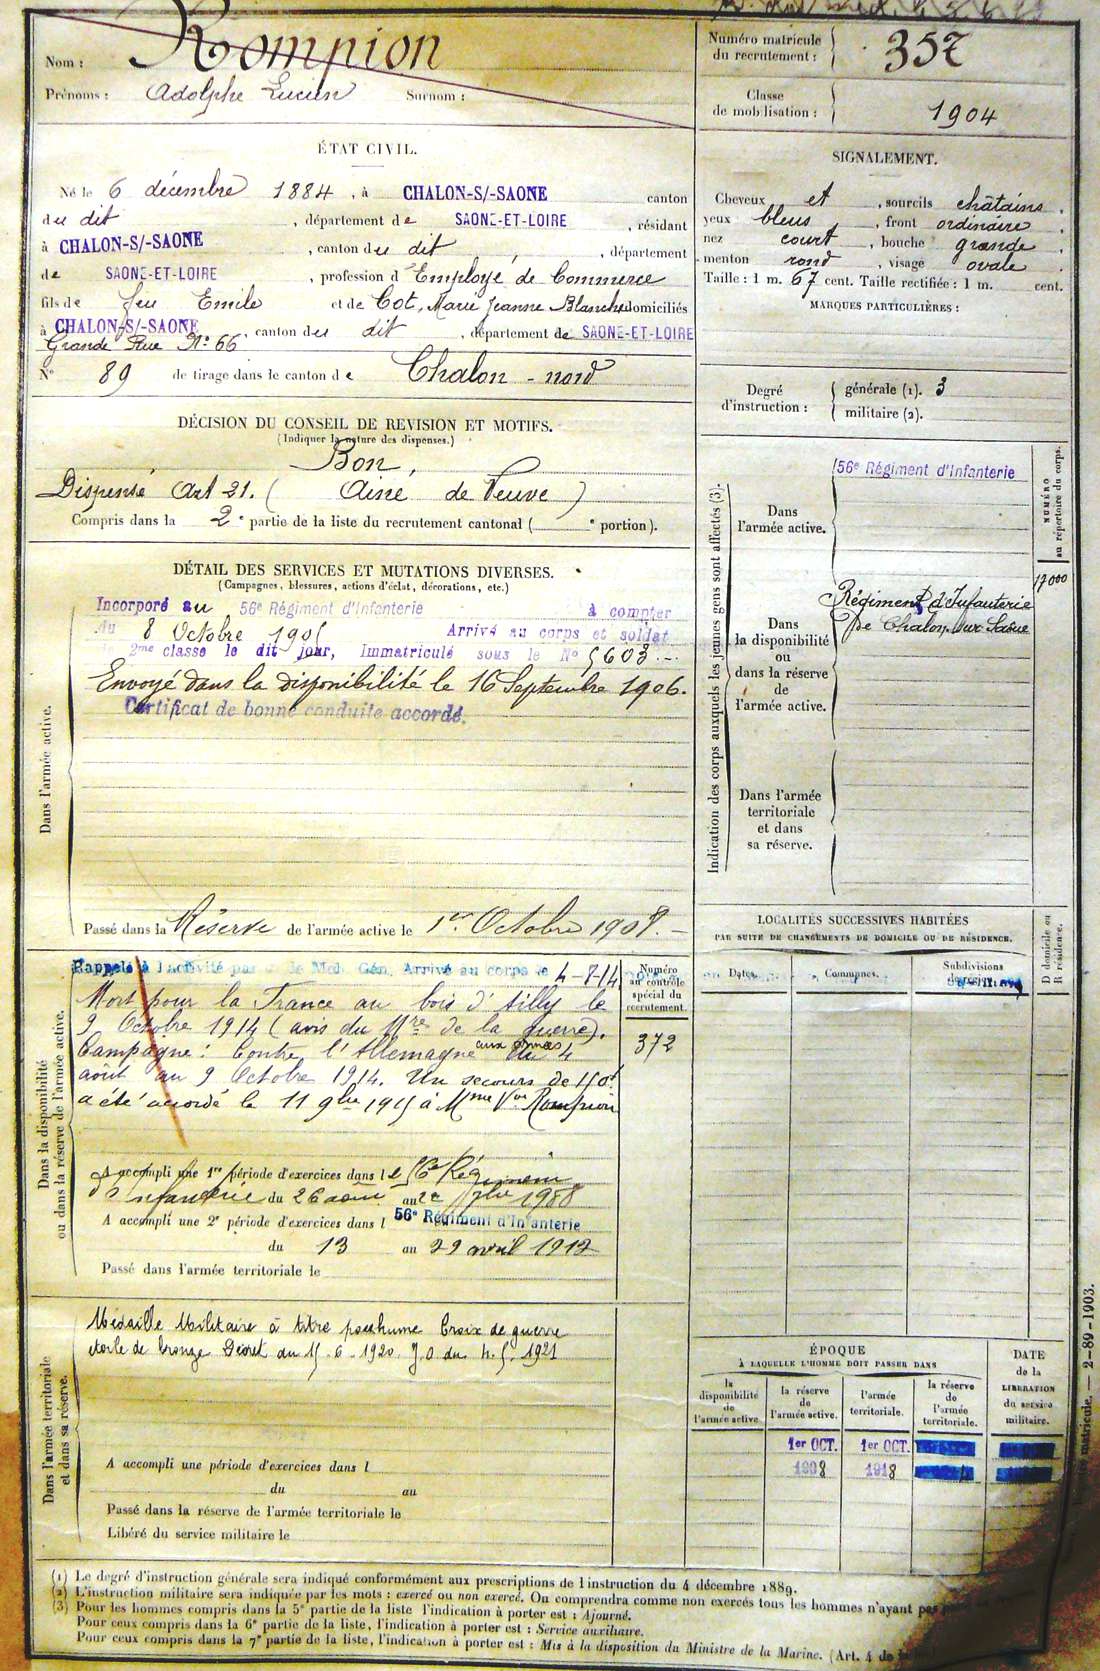 Nom : Rompion
Prénoms : Adolphe Lucien Surnom :
Numéro matricule du recrutement : 357
Classe de mobilisation : 1904
ÉTAT CIVIL.
Né le 6 décembre 1884, à CHALON-S/-SAONE canton
du dit, département de SAONE-ET-LOIRE, résidant
à CHALON-S/-SAONE, canton du dit, département
de SAONE-ET-LOIRE, profession d'Employé de Commerce
fils de feu Emile et de Cot, Marie Jeanne Blanche domiciliés
à CHALON-S/-SAONE, canton du dit, département de SAONE-ET-LOIRE
Grande Rue No 66
No 89 de tirage dans le canton de Chalon-nord
SIGNALEMENT.
Cheveux et, sourcils châtains,
yeux bleus, front ordinaire,
nez court, bouche grande,
menton rond, visage ovale.
Taille : 1 m. 67 cent. Taille rectifiée : 1 m. cent.
MARQUES PARTICULIÈRES :
Degré d'instruction :
générale (1). 3
militaire (2).
DÉCISION DU CONSEIL DE REVISION ET MOTIFS.
(Indiquer la nature des dispenses.)
Bon,
Dispensé Art 21. ( Ainé de Veuve )
Compris dans la 2e partie de la liste du recrutement cantonal ( e portion).
DÉTAIL DES SERVICES ET MUTATIONS DIVERSES.
(Campagnes, blessures, actions d'éclat, décorations, etc.)
Dans l'armée active.
Incorporé au 56e Régiment d'Infanterie à compter
du 8 Octobre 1905 Arrivé au corps et soldat
de 2me classe le dit jour, Immatriculé sous le No 5603
Envoyé dans la disponibilité le 16 Septembre 1906.
Certificat de bonne conduite accordé.
Passé dans la Réserve de l'armée active le 1er Octobre 1908.
Indication des corps auxquels les jeunes gens sont affectés (3).
NUMÉRO au répertoire du corps.
Dans l'armée active.
56e Régiment d'Infanterie
17000
Dans la disponibilité ou dans la réserve de l'armée active.
Régiment d'Infanterie
de Chalon sur Saône
Dans l'armée territoriale et dans sa réserve.
Dans la disponibilité ou dans la réserve de l'armée active.
Rappelé à l'activité par de Mob. Gén. Arrivé au corps le 4-8-14
Mort pour la France au bois d'Ailly le
9 Octobre 1914 (avis du Mre de la guerre).
Campagne : Contre l'Allemagne aux armées du 4
août au 9 Octobre 1914. Un secours de 150f
a été accordé le 11 9bre 1915 à Mme Vve Rompion
Numéro au contrôle spécial du recrutement.
372
A accompli une 1re période d'exercices dans le 56e Régiment
d'Infanterie du 26 août au 1908
A accompli une 2e période d'exercices dans l 56e Régiment d'Infanterie
du 13 au 29 avril 1912
Passé dans l'armée territoriale le
LOCALITÉS SUCCESSIVES HABITÉES
PAR SUITE DE CHANGEMENTS DE DOMICILE OU DE RÉSIDENCE.
Dates. Communes. Subdivisions de région.
D domicile ou R résidence.
Dans l'armée territoriale et dans sa réserve.
Médaille Militaire à titre posthume Croix de guerre
étoile de bronze Décret du 15-6-1920. J.O du 4.5.1921
A accompli une période d'exercices dans l
du au
Passé dans la réserve de l'armée territoriale le
Libéré du service militaire le
ÉPOQUE
À LAQUELLE L'HOMME DOIT PASSER DANS
la disponibilité de l'armée active
la réserve de l'armée active.
l'armée territoriale.
la réserve de l'armée territoriale.
DATE de la LIBÉRATION du service militaire.
1er OCT. 1er OCT.
1908 1918
matricule. — 2-89-1903.
(1) Le degré d'instruction générale sera indiqué conformément aux prescriptions de l'instruction du 4 décembre 1889.
(2) L'instruction militaire sera indiquée par les mots : exercé ou non exercé. On comprendra comme non exercés tous les hommes n'ayant pas
(3) Pour les hommes compris dans la 5e partie de la liste l'indication à porter est : Ajourné.
Pour ceux compris dans la 6e partie de la liste, l'indication à porter est : Service auxiliaire.
Pour ceux compris dans la 7e partie de la liste, l'indication à porter est : Mis à la disposition du Ministre de la Marine. (Art. 4 de